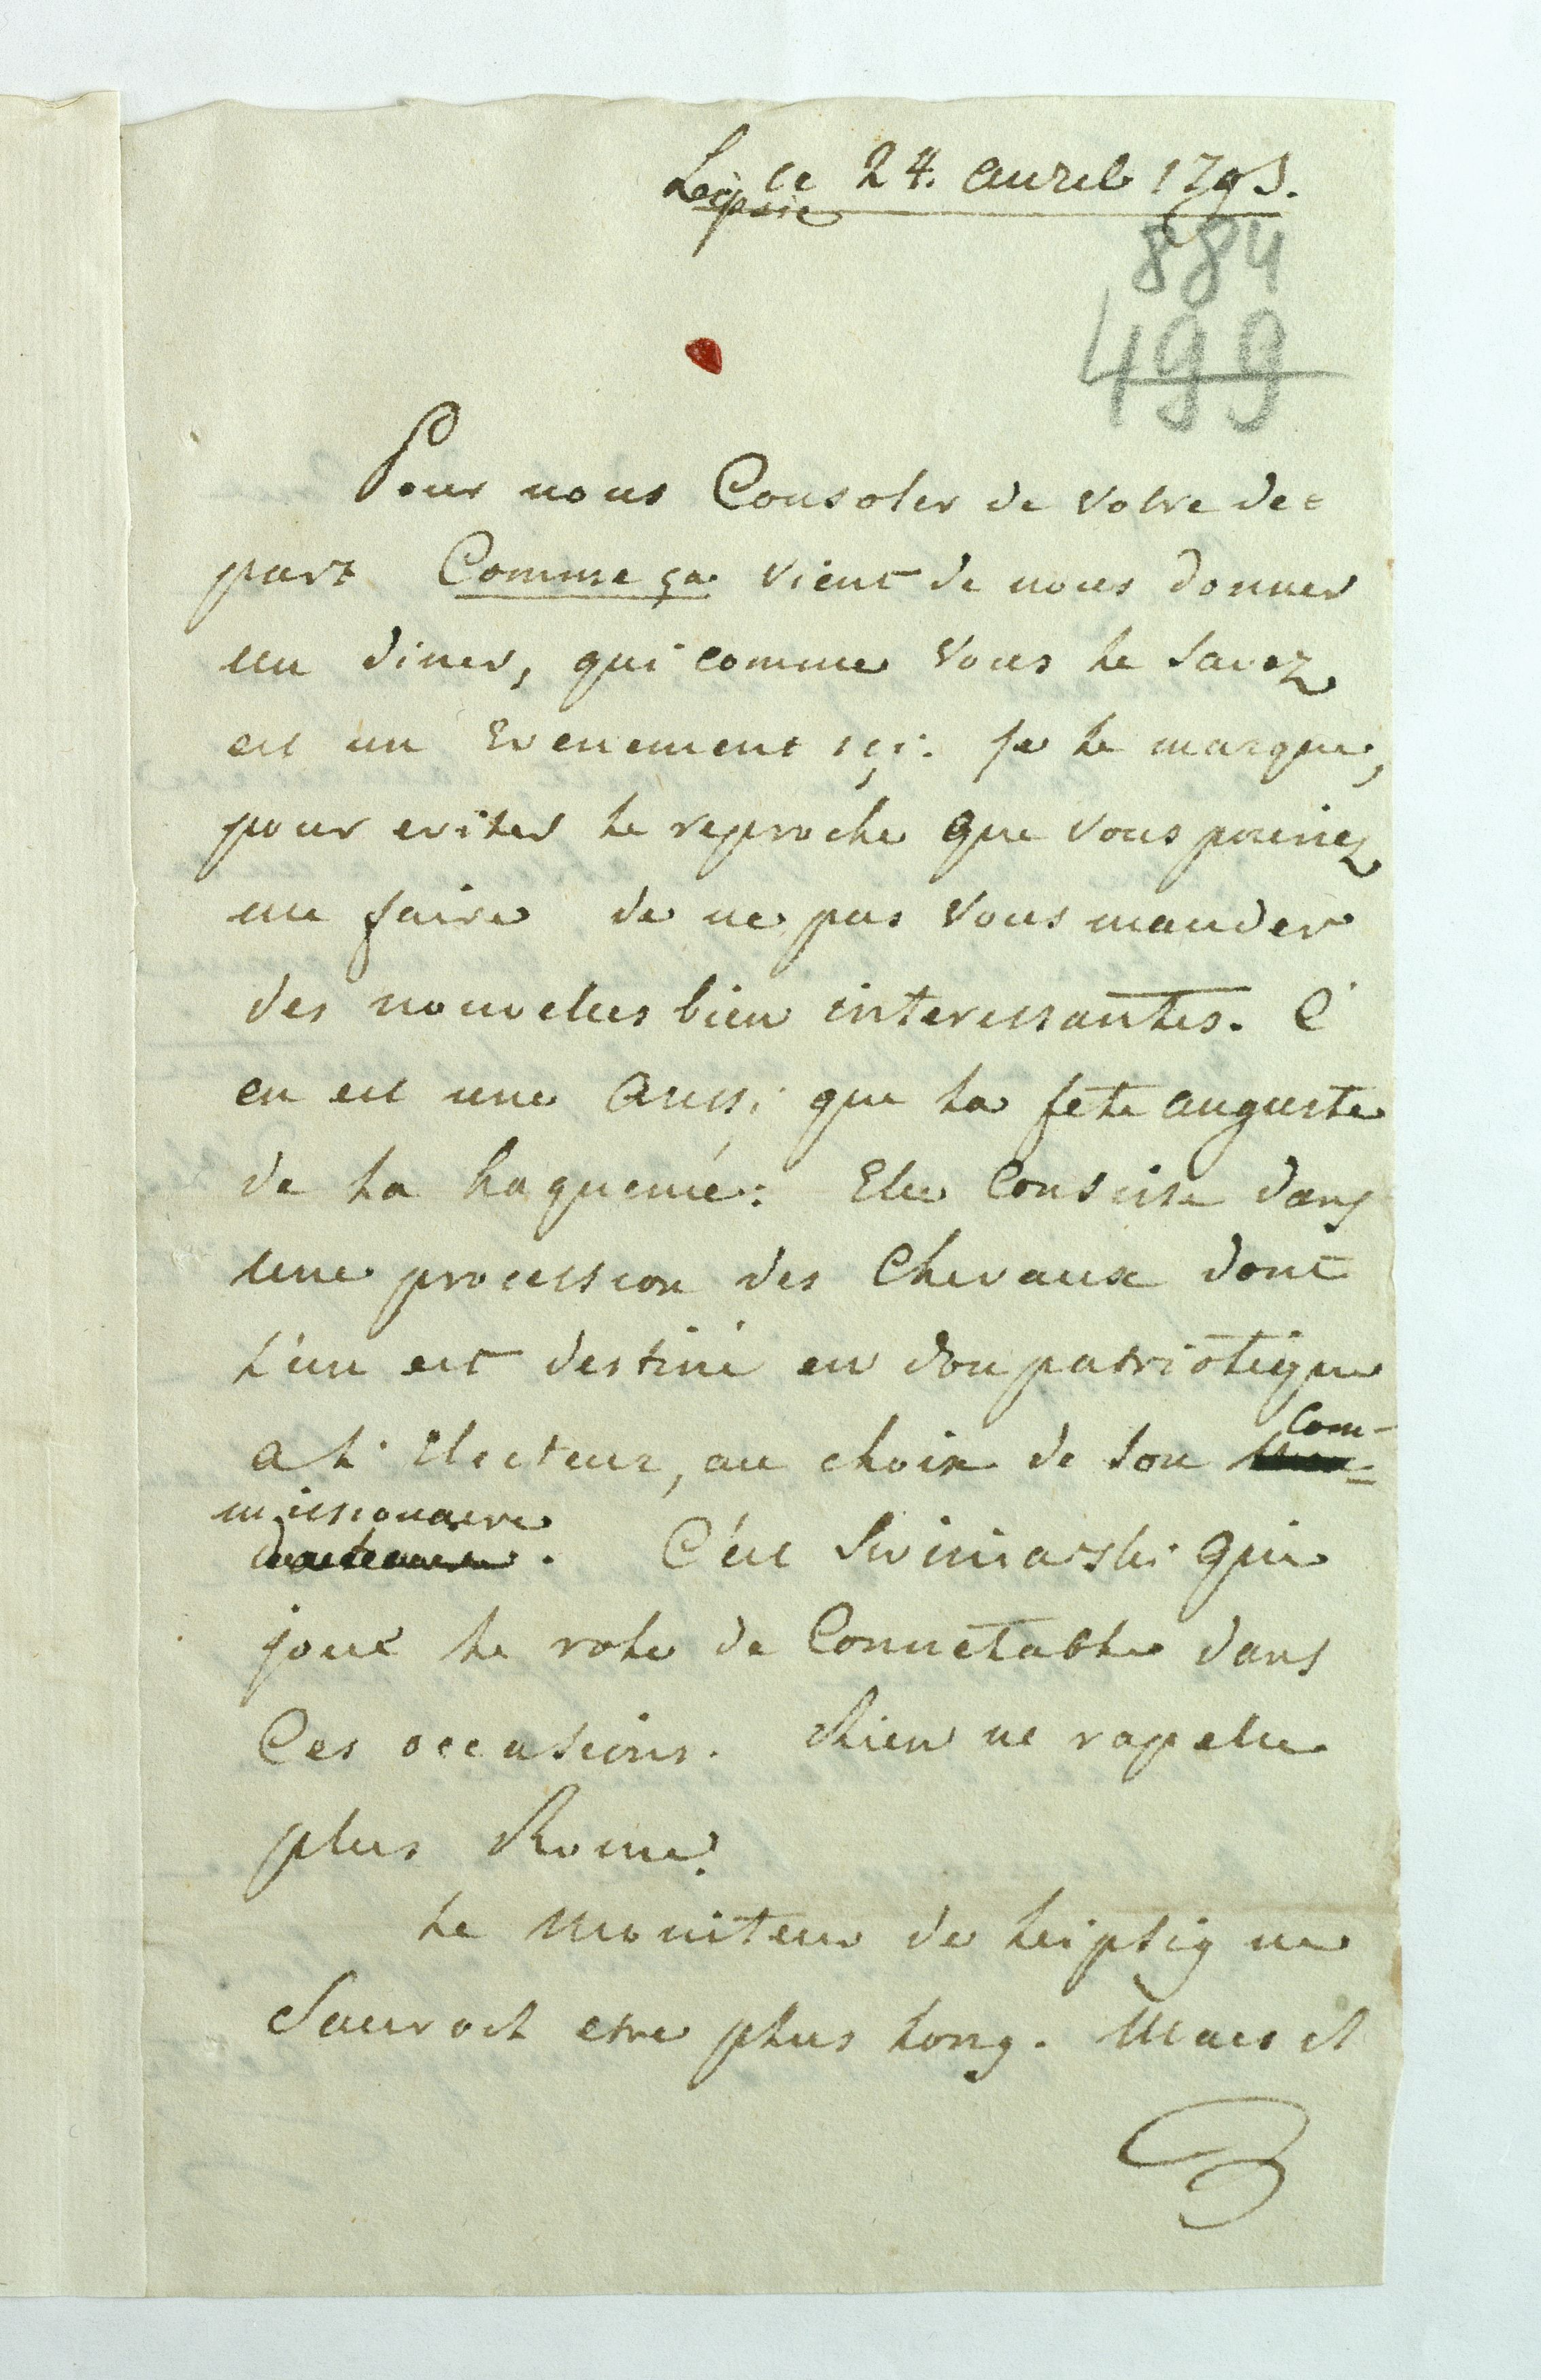 Leipsic ce 24. avril 1793.
884
499
Pour nous Consoler de votre de=
part Comme ça vient de nous donner
un diner, qui comme vous le savez
est un Evenement içi. Je le marque,
pour eviter le reproche que vous pouriez
me faire de ne pas vous mander
des nouvelles bien interessantes. C'
en est une aussi que la fete auguste
de la haquenée: Elle Consiste dans
une procession des Chevaux dont
l'un est destiné en don patriotique
a l'Electeur, au choix de son Com-
missionaire. C'est Swiniarski qui
joue le role de Connetable dans
Ces occasions. Rien ne rapelle
plus Rome.
Le Moniteur de Leipsig ne
Sauroit etre plus long. Mais il